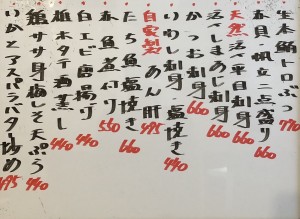 生本鮪トロぶつ 770
春貝・帆立二点盛り 660
天然活〆平目刺身 660
活〆まあじ刺身 660
かつお刺身 660
いわし刺身・塩焼き 440
自家製あん肝 495
たちうお塩焼き 660
春魚煮付け 550
白エビ唐揚げ 440
稚ホタテ酒蒸し 440
鶏ササ身梅しそ天ぷら 440
いかとアスパラバター炒め 495